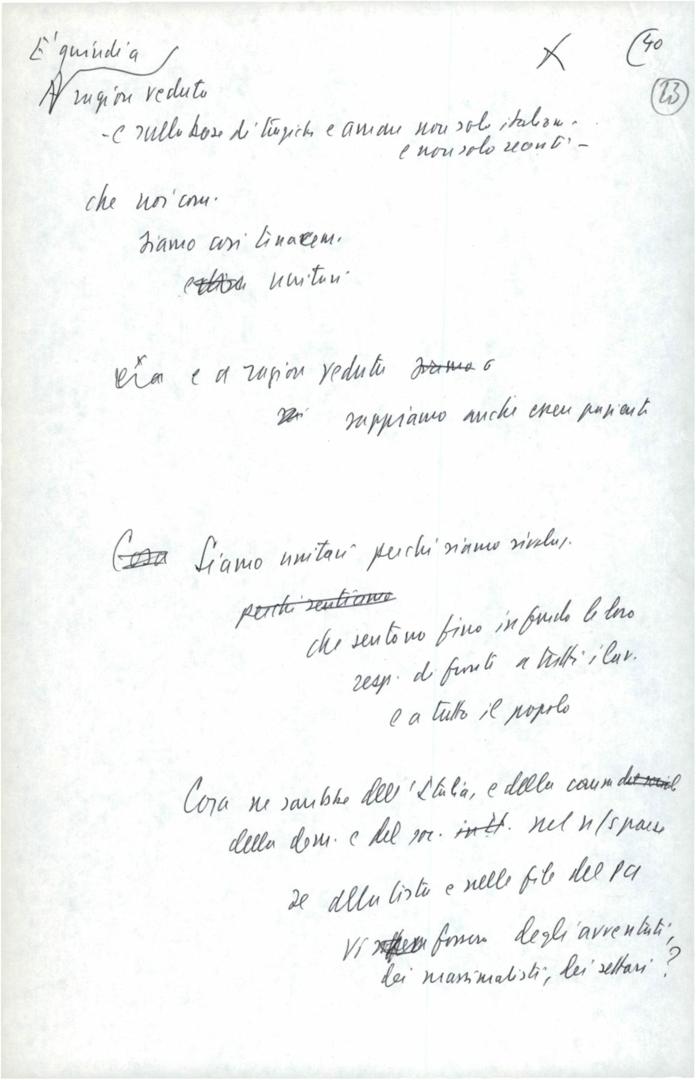 E' quindi a
X
(40
A ragion veduta
23
- e sulla base di tragiche e amare non solo italiane
e non solo recenti -
che noi com.
siamo così tenacem.
unitari
e a ragion veduta siamo
sappiamo anche essere pazienti
Cosa Siamo unitari perché siamo rivoluz.
perché sentiamo
che sentono fino in fondo le loro
resp. di fronte a tutti i lav.
e a tutto il popolo
Cosa ne sarebbe dell'Italia, e della causa
della dem. e del soc. nel n/s paese
se alla testa e nelle file del PCI
vi fossero degli avventati,
dei massimalisti, dei settari?